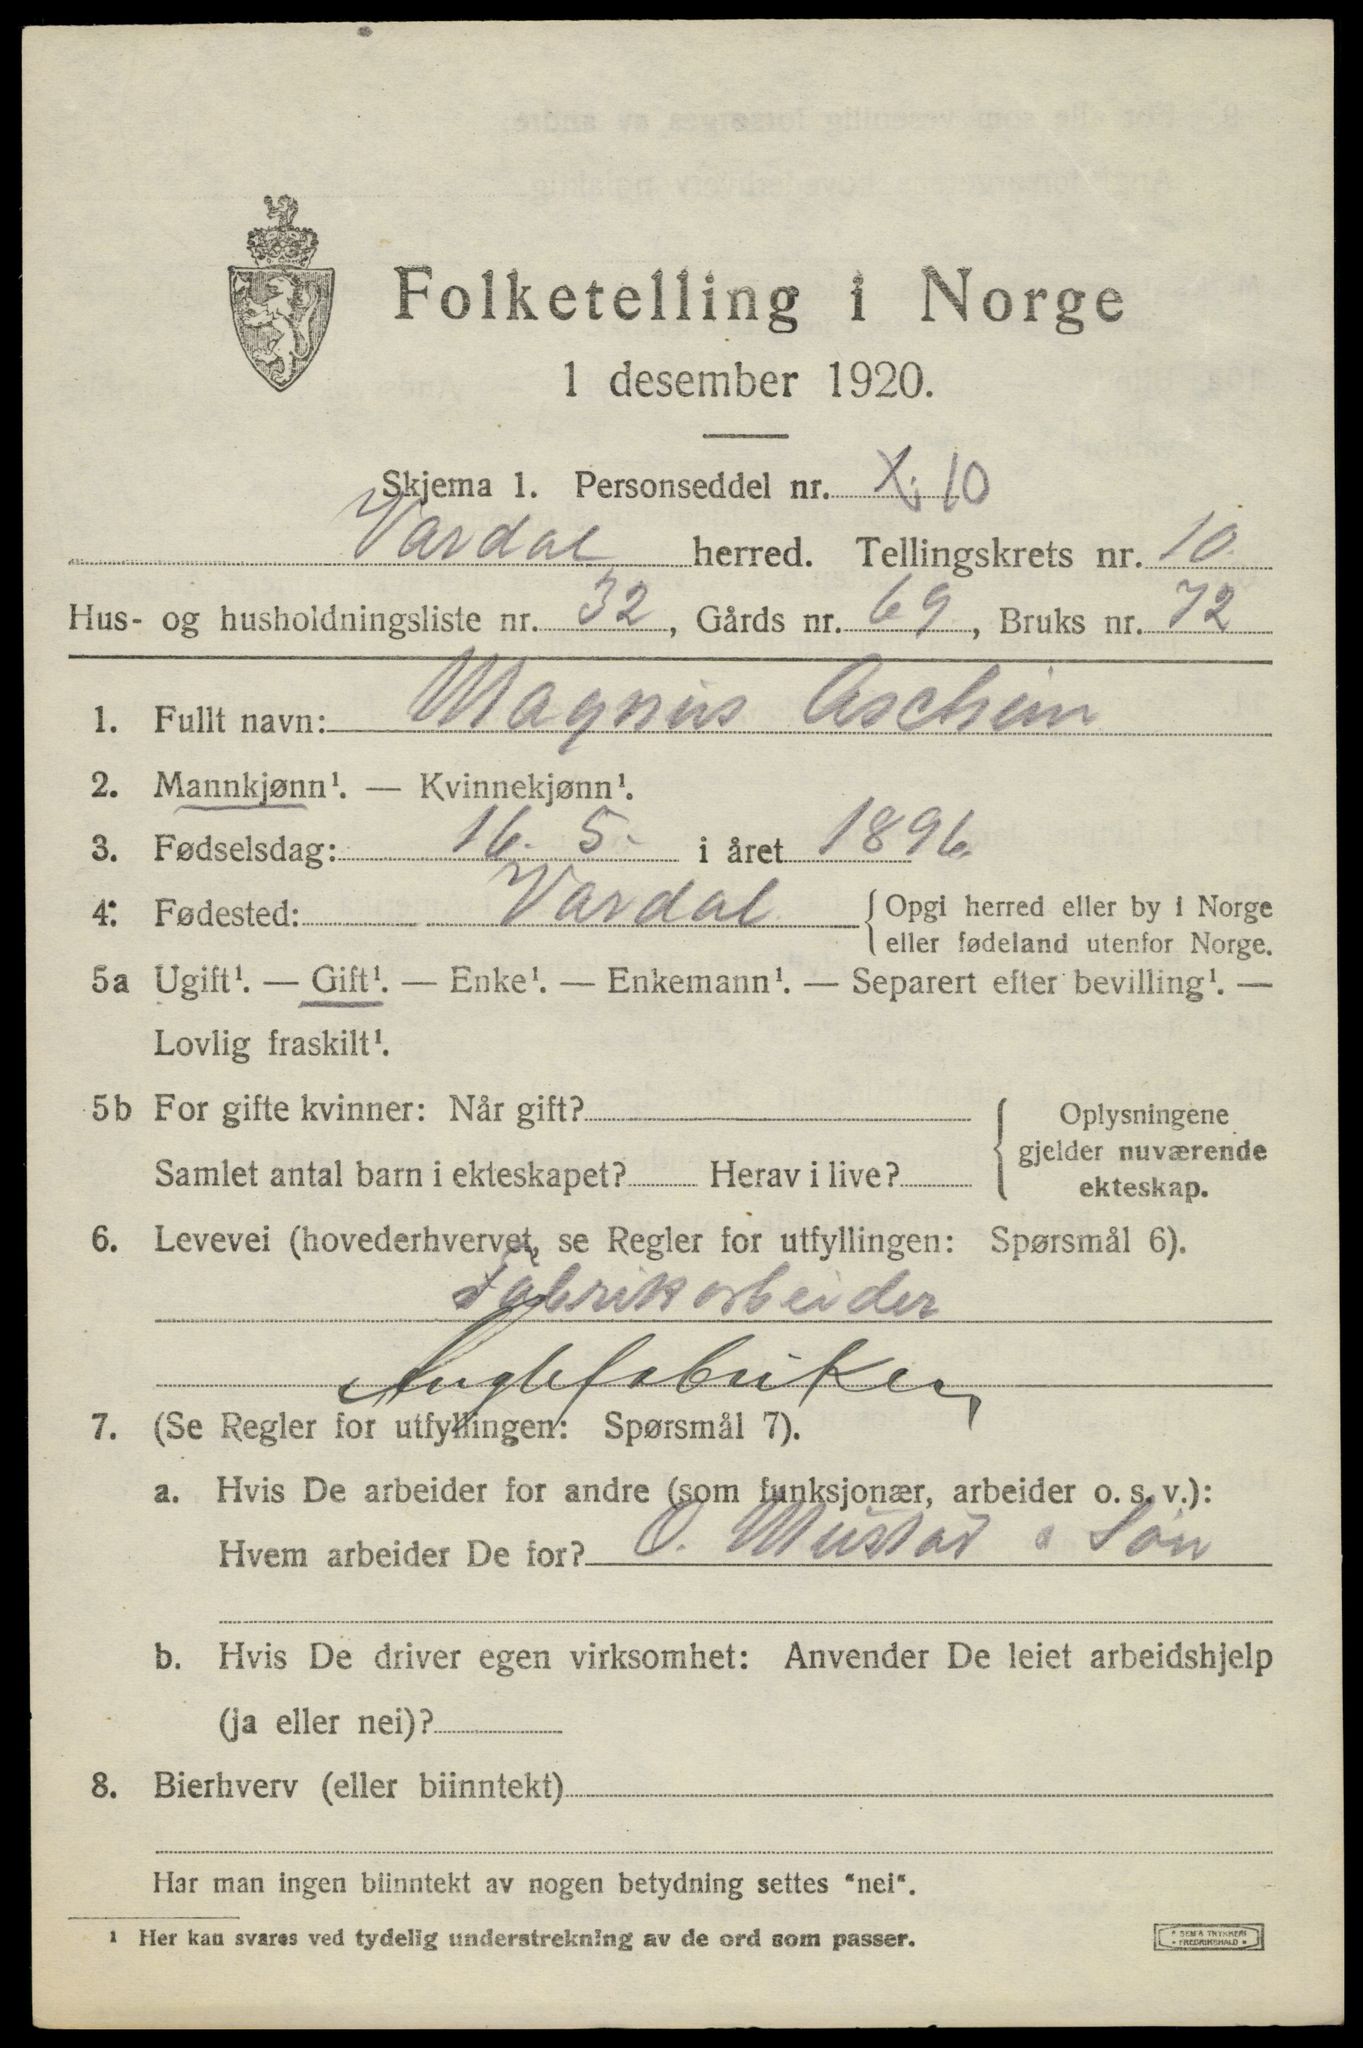 Folketelling i Norge
1 desember 1920.
Skjema 1. Personseddel nr. X; 10
Vardal herred. Tellingskrets nr. 10
Hus- og husholdningsliste nr. 32, Gårds nr. 69, Bruks nr. 72
1. Fullt navn: Magnus Ascheim
2. Mannkjønn¹. — Kvinnekjønn¹.
3. Fødselsdag: 16. 5. i året 1896.
4. Fødested: Vardal {Opgi herred eller by i Norge
eller fødeland utenfor Norge.
5a Ugift¹. — Gift¹. — Enke¹. — Enkemann¹. — Separert efter bevilling¹. —
Lovlig fraskilt¹.
5b For gifte kvinner: Når gift? { Oplysningene
gjelder nuværende
Samlet antal barn i ekteskapet? Herav i live?
ekteskap.
6. Levevei (hovederhvervet, se Regler for utfyllingen: Spørsmål 6).
Fabrikarbeider
Anglefabriken
7. (Se Regler for utfyllingen: Spørsmål 7).
a. Hvis De arbeider for andre (som funksjonær, arbeider o. s. v.):
Hvem arbeider De for? O. Mustad & Søn
b. Hvis De driver egen virksomhet: Anvender De leiet arbeidshjelp
(ja eller nei)?
8. Bierhverv (eller biinntekt)
Har man ingen biinntekt av nogen betydning settes "nei".
¹ Her kan svares ved tydelig understrekning av de ord som passer.
SEM'S TRYKKERI
FREDRIKSHALD